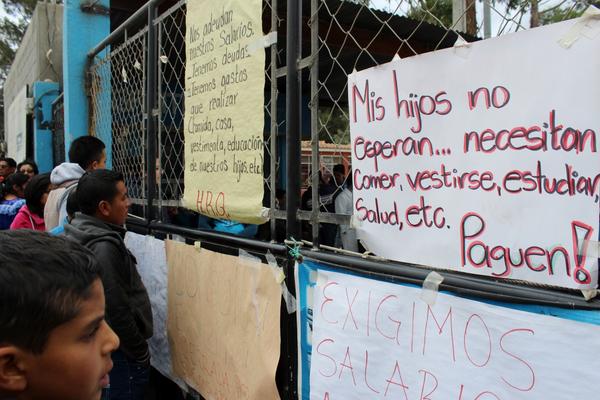 Nos adeudan
nuestros Salarios.
-Tenemos deudas
-Tenemos gastos
que realizar
Comida, casa,
vestimenta, educación
de nuestros hijos, etc.
H.R.O.
Mis hijos no
esperan... necesitan
Comer, vestirse, estudiar,
Salud, etc.
Paguen!
EXIGIMOS
SALARIO